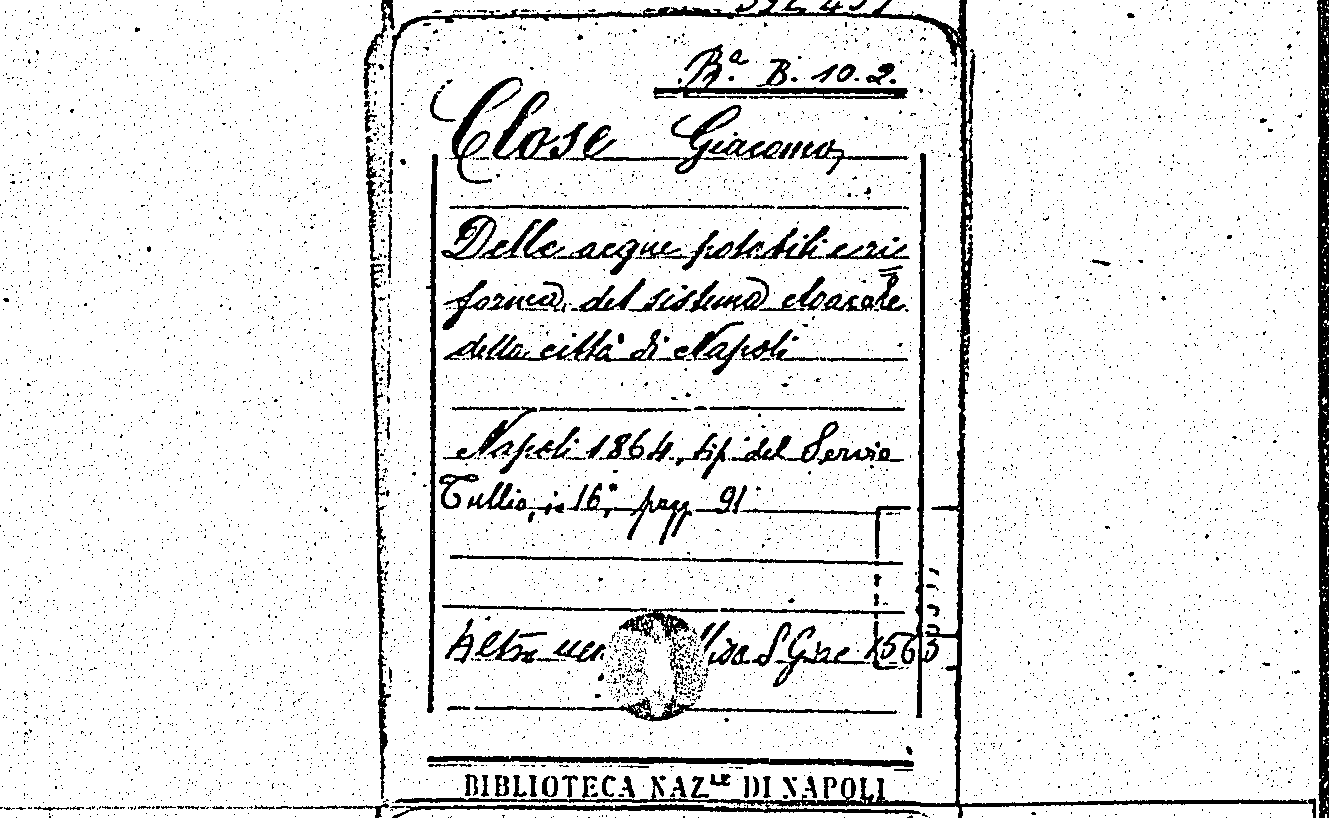 Rᵃ. B. 10. 2.
Close Giacomo,
Delle acque potabili e ri
forma del sistema cloacale
della città di Napoli
Napoli 1864, tip. del Servio
Tullio, in 16°, pagg. 91
Altra S Gre 1563
BIBLIOTECA NAZLE DI NAPOLI